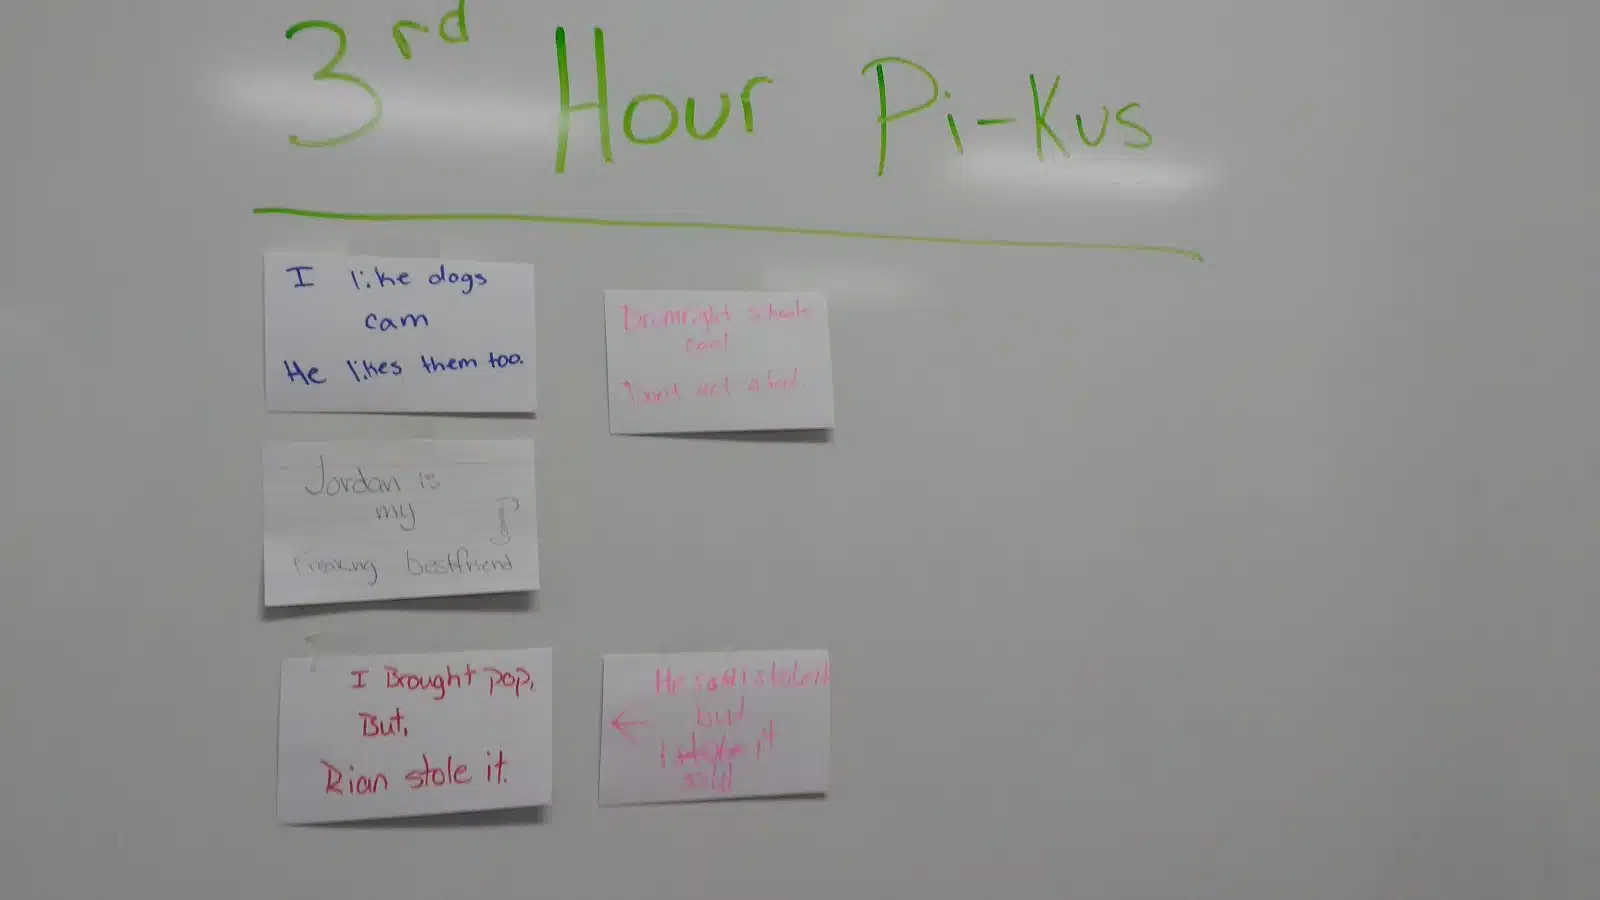 3rd Hour Pi-Kus
I like dogs
cam
He likes them too.
Drumright schools
cool
Don't act a fool.
Jordan is
my
freaking bestfriend
I Brought pop,
But,
Rian stole it.
He said I stole it
but
I
it